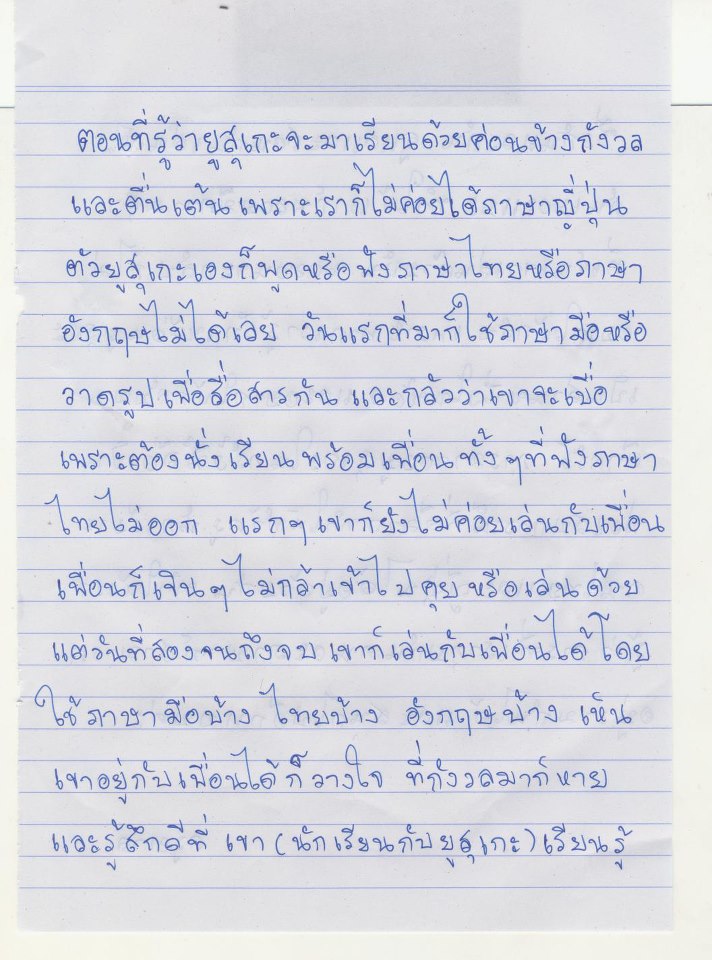 ตอนที่รู้ว่ายูสุเกะจะมาเรียนด้วยค่อนข้างกังวล
และตื่นเต้น เพราะเราก็ไม่ค่อยได้ภาษาญี่ปุ่น
ตัวยูสุเกะเองก็พูดหรือฟังภาษาไทยหรือภาษา
อังกฤษไม่ได้เลย วันแรกที่มาก็ใช้ภาษามือหรือ
วาดรูปเพื่อสื่อสารกัน และกลัวว่าเขาจะเบื่อ
เพราะต้องนั่งเรียนพร้อมเพื่อนทั้งๆที่ฟังภาษา
ไทยไม่ออก แรกๆเขาก็ยังไม่ค่อยเล่นกับเพื่อน
เพื่อนก็เขินๆไม่กล้าเข้าไปคุยหรือเล่นด้วย
แต่วันที่สองจนถึงจบเขาก็เล่นกับเพื่อนได้โดย
ใช้ภาษามือบ้าง ไทยบ้าง อังกฤษบ้าง เห็น
เขาอยู่กับเพื่อนได้ก็วางใจ ที่กังวลมาก็หาย
และรู้สึกดีที่ เขา (นักเรียนกับยูสุเกะ) เรียนรู้